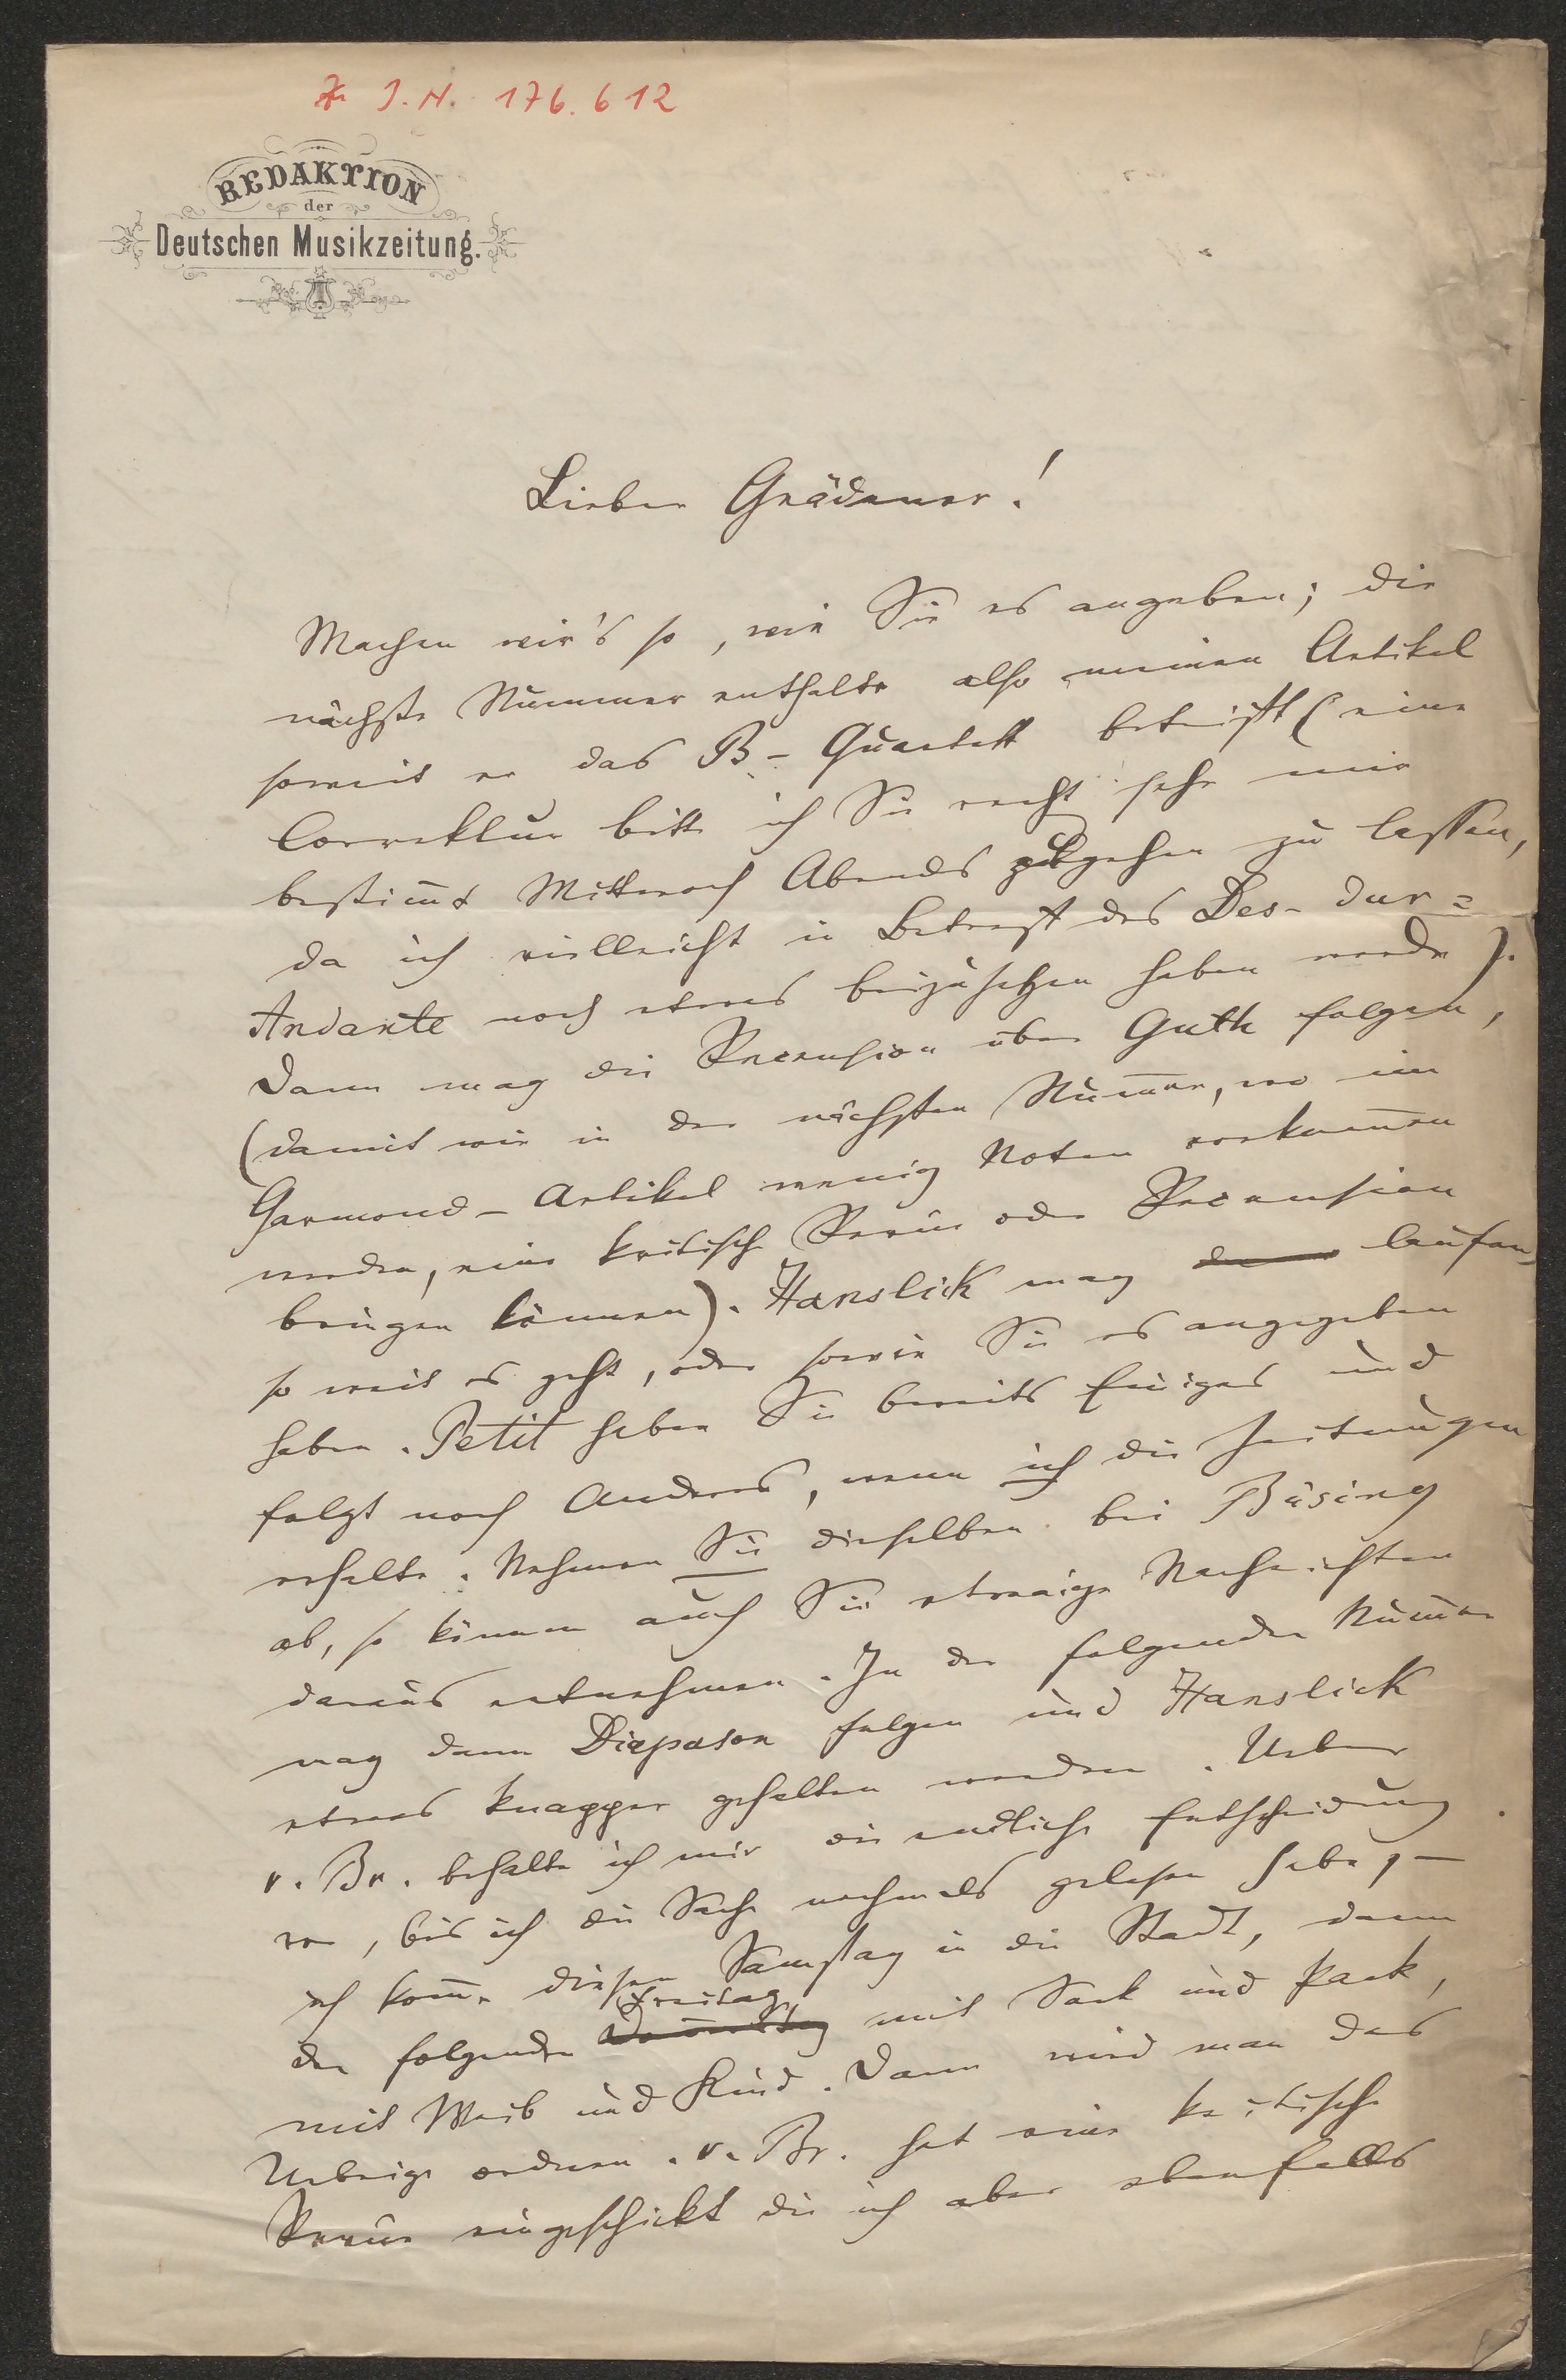 Zu I. N. 176.612
REDAKTION
der
Deutschen Musikzeitung.
Lieber Grädener!
Machen wir's so, wie Sie es angeben; die
nächste Nummer enthalte also meinen Artikel
soweit er das B-Quartett betrifft (eine
Correktur bitte ich Sie recht sehr mir
bestimt Mittwoch Abends zugehen zu lassen,
da ich vielleicht in Betreff des Des-dur=
Andante noch etwas beizusetzen haben werde).
Dann mag die Recension über Guth folgen,
(damit wir in der nächsten Numer, wo im
Garmond-Artikel wenig Noten vorkomen
werden, eine kritische Revue oder Recension
bringen können). Hanslick mag laufen,
so weit es geht, oder sowie Sie es angegeben
haben. Petit haben Sie bereits Einiges und
folgt noch Anderes, wenn ich die Zeitungen
erhalte. Nehmen Sie dieselben bei Büsing
ab, so können auch Sie etwaige Nachrichten
daraus entnehmen. In der folgenden Numer
mag dann Diapason folgen und Hanslick
etwas knapper gehalten werden. Ueber
v. Br. behalte ich mir die endliche Entscheidung
vor, bis ich die Sache nochmals gelesen habe, –
ich kome diesen Samstag in die Stadt, dann
den folgenden Freitag mit Sack und Pack,
mit Weib und Kind. Dann wird man das
Uebrige ordnen. v. Br. hat eine kritische
Revue eingeschickt die ich aber ebenfalls